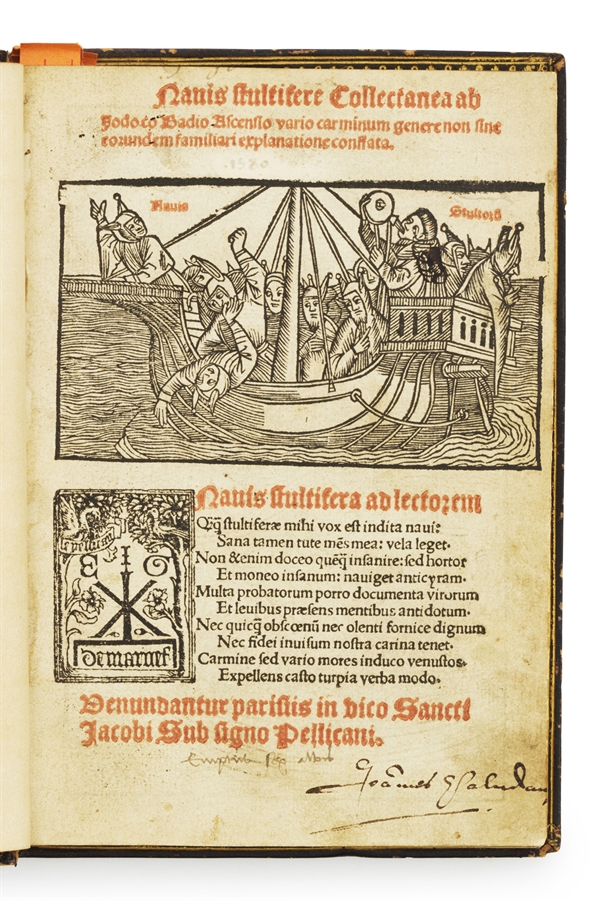 Nauis stultifere Collectanea ab
Jodoco Badio Ascensio vario carminum genere non sine
eorundem familiari explanatione conflata.
1520
Nauis
Stultorū
Nauis stultifera ad lectorem
Qq̃ stultiferæ mihi vox est indita naui:
Sana tamen tute mẽs mea: vela leget.
Non &enim doceo quẽq̃ insanire: sed hortor
Et moneo insanum: nauiget anticyram.
Multa probatorum porro documenta virorum
Et leuibus præsens mentibus antidotum.
Nec quicq̃ obscœnũ nec olenti fornice dignum
Nec fidei inuisum nostra carina tenet.
Carmine sed vario mores induco venustos.
Expellens casto turpia verba modo.
E I G
de marnef
Venundantur parisiis in vico Sancti
Jacobi Sub signo Pellicani.
Joānes